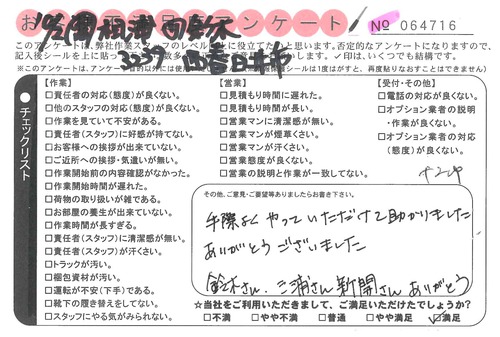 お アンケート № 064716
3237
このアンケートは、弊社作業スタッフのレベル に役立てたいと思います。否定的なアンケートになりますので、
※このアンケートは、アンケート目的以外には使
✓印は、いくつでも結構です。
● チェックリスト
【作業】
□責任者の対応(態度)が良くない。
□他のスタッフの対応(態度)が良くない。
□作業を見ていて不安がある。
□責任者(スタッフ)に好感が持てない。
□お客様への挨拶が出来ていない。
□ご近所への挨拶・気遣いが無い。
□作業開始前の内容確認がなかった。
□作業開始時間が遅れた。
□荷物の取り扱いが雑である。
□お部屋の養生が出来ていない。
□作業時間が長すぎる。
□責任者(スタッフ)に清潔感が無い。
□責任者(スタッフ)が汗くさい。
□トラックが汚い。
□梱包資材が汚い。
□運転が不安(下手)である。
□靴下の履き替えをしてない。
□スタッフにやる気がみられない。
【営業】
□見積もり時間に遅れた。
□見積もり時間が長い。
□営業マンに清潔感が無い。
□営業マンが煙草くさい。
□営業マンが汗くさい。
□営業態度が良くない。
□営業の説明と作業が一致してない。
【受付・その他】
□電話の対応が良くない。
□オプション業者の説明
・作業が良くない。
□オプション業者の対応
(態度)が良くない。
その他、ご意見・ご要望等ありましたらお書き下さい。
手際よくやっていただけて助かりました
ありがとうございました
鈴木さん、三浦さん 新開さん ありがとう
★当社をご利用いただきまして、ご満足いただけたでしょうか?
□不満 □やや不満 □普通 □やや満足 ☑満足